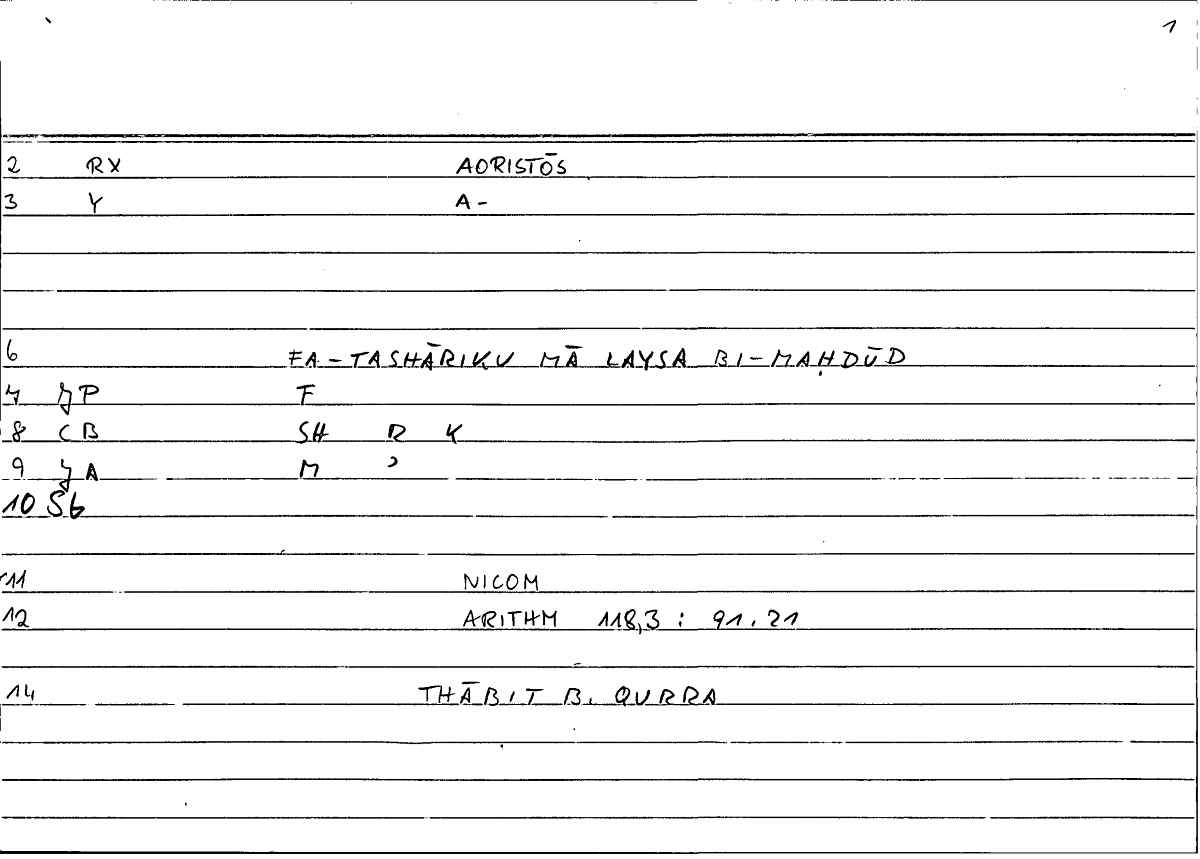 1
2 RX AORISTŌS
3 Y A-
6 FA-TASHĀRIKU MĀ LAYSA BI-MAḤDŪD
7 JP F
8 CB SH R K
9 JA M ʾ
10 Sb
11 NICOM
12 ARITHM 118,3 : 91.21
14 THĀBIT B. QURRA